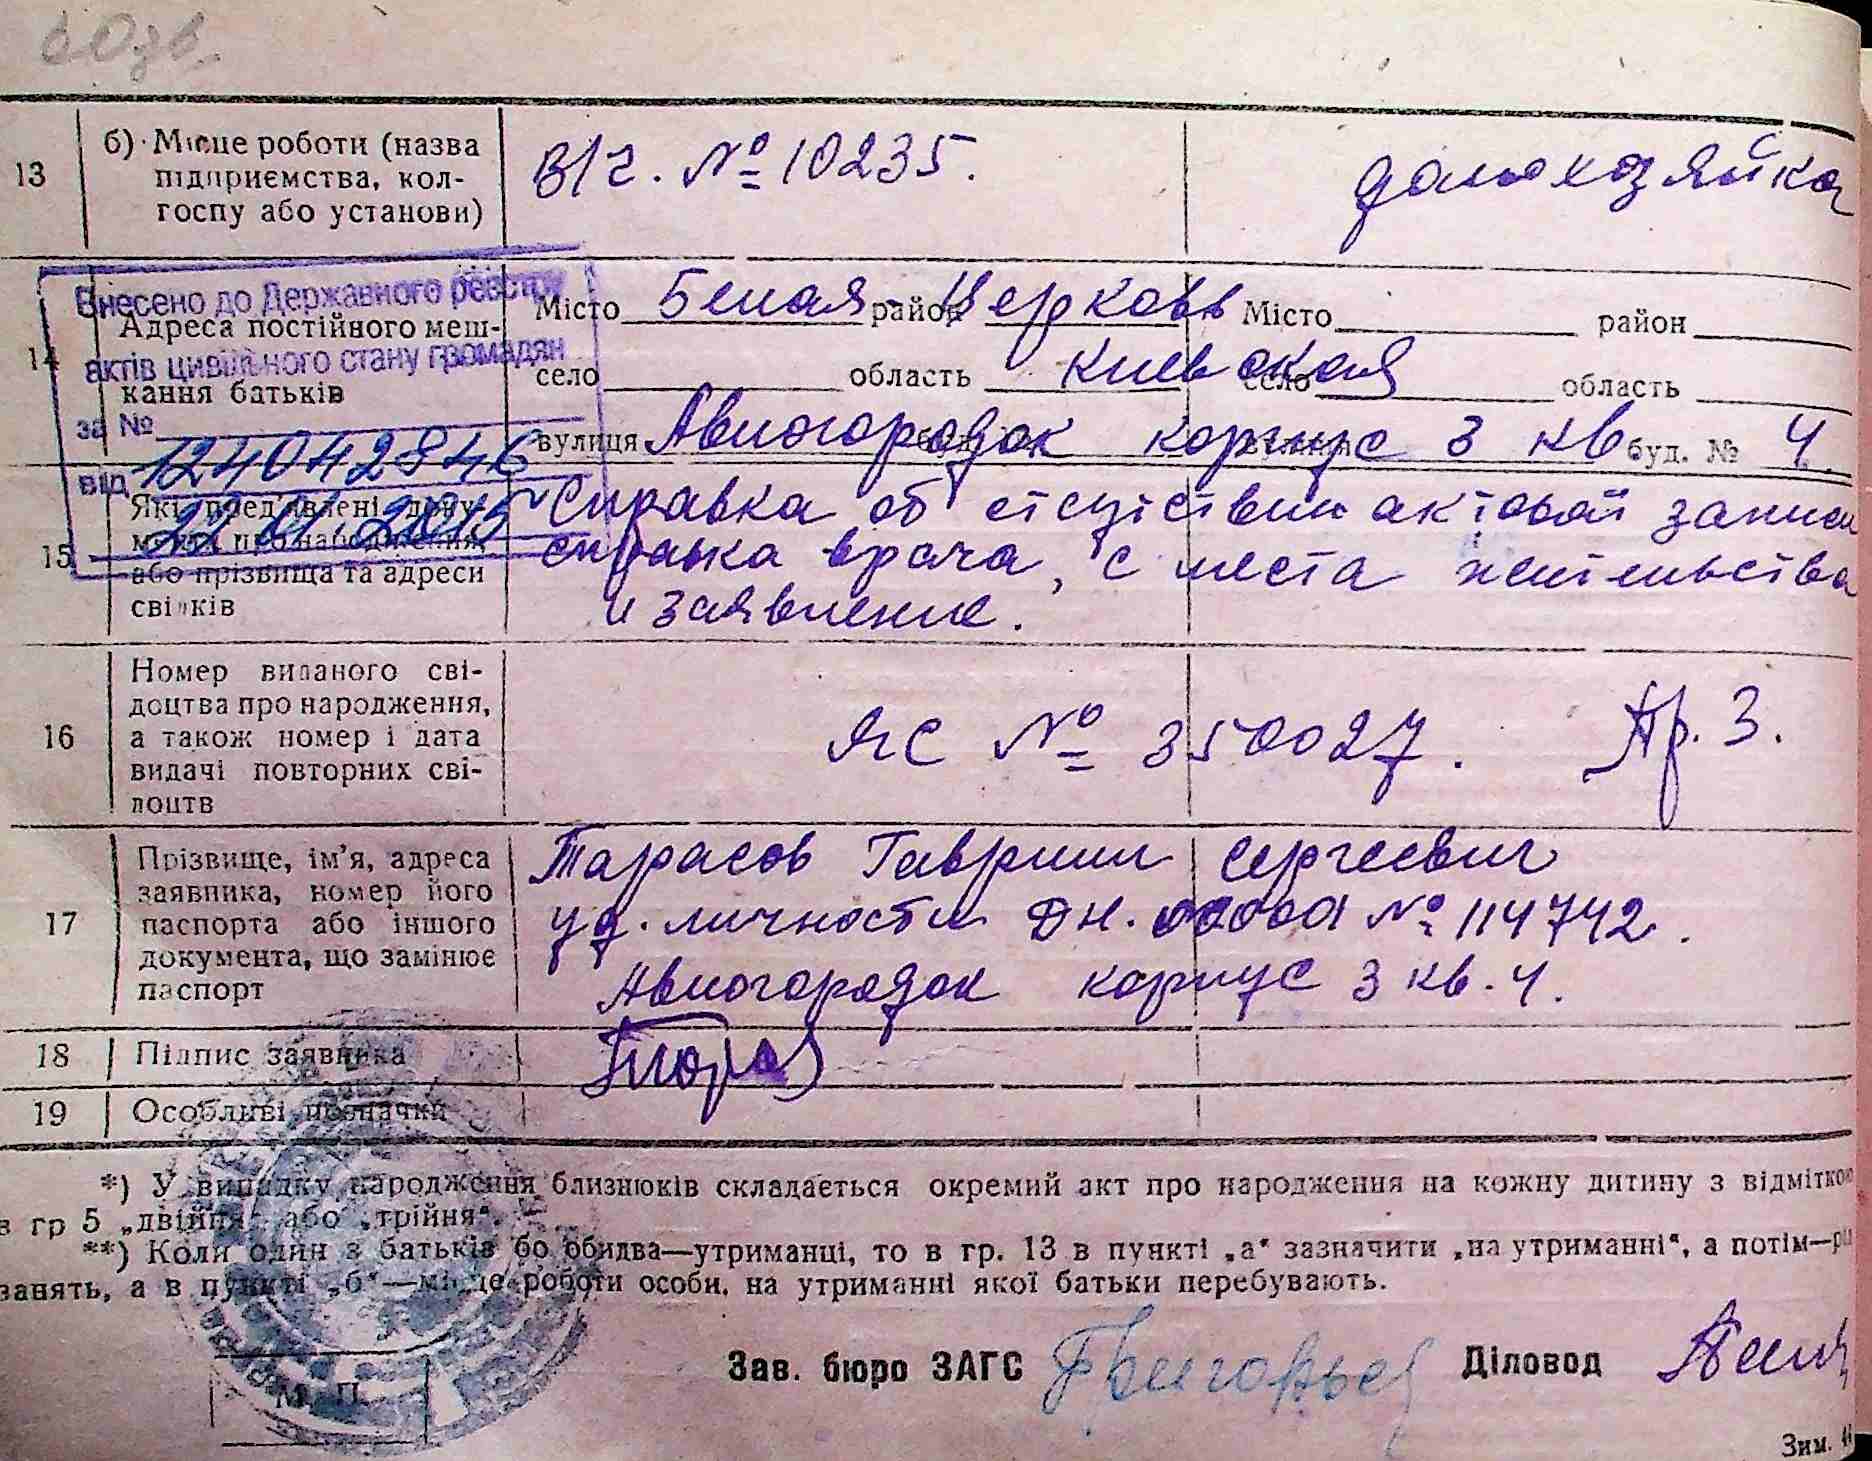 13
б) Місце роботи (назва
підприємства, кол-
госпу або установи)
в/г. № 10235.
домохозяйка
Внесено до Державного реєстру
актів цивільного стану громадян
за № 124042846
від 22.01.2015
14
Адреса постійного меш-
кання батьків
Місто Белая-Церковь район Місто район
село область Киевская село область
вулиця Авиогородок корпус 3 кв буд. № 4.
15
Які пред'явлені доку-
менти про народження,
або прізвища та адреси
свідків
Справка об отсутствии актовой записи
справка врача, с места жительства
и заявление.
16
Номер виданого сві-
доцтва про народження,
а також номер і дата
видачі повторних сві-
доцтв
ЯС № 350027. Пр. 3.
17
Прізвище, ім'я, адреса
заявника, номер його
паспорта або іншого
документа, що замінює
паспорт
Тарасов Гавриил Сергеевич
уд. личности № 114742.
Авиогородок корпус 3 кв. 4.
18
Підпис заявника
19
Особливі позначки
*) У випадку народження близнюків складається окремий акт про народження на кожну дитину з відміткою
в гр 5 „двійня“ або „трійня“.
**) Коли один з батьків бо обидва—утриманці, то в гр. 13 в пункті „а“ зазначити „на утриманні“, а потім—рід
занять, а в пункті „б“—місце роботи особи, на утриманні якої батьки перебувають.
Зав. бюро ЗАГС Григорьев Діловод
М. П.
Зим.